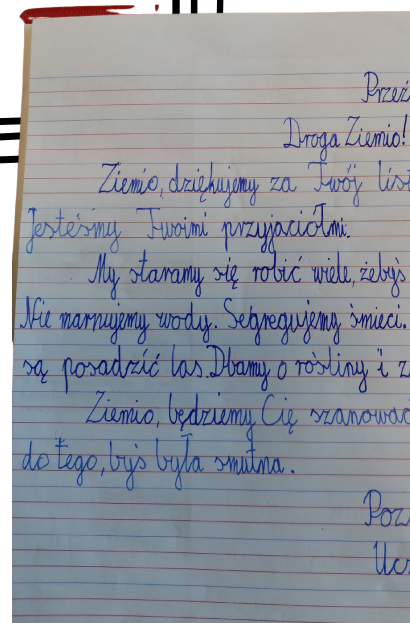 Przeź
Droga Ziemio!
Ziemio, dziękujemy za Twój list
Jesteśmy Twoimi przyjaciółmi.
My staramy się robić wiele, żebyś
Nie marnujemy wody. Segregujemy śmieci.
są posadzić las. Dbamy o rośliny i z
Ziemio, będziemy Cię szanować
do tego, byś była smutna.
Poz
Ucz